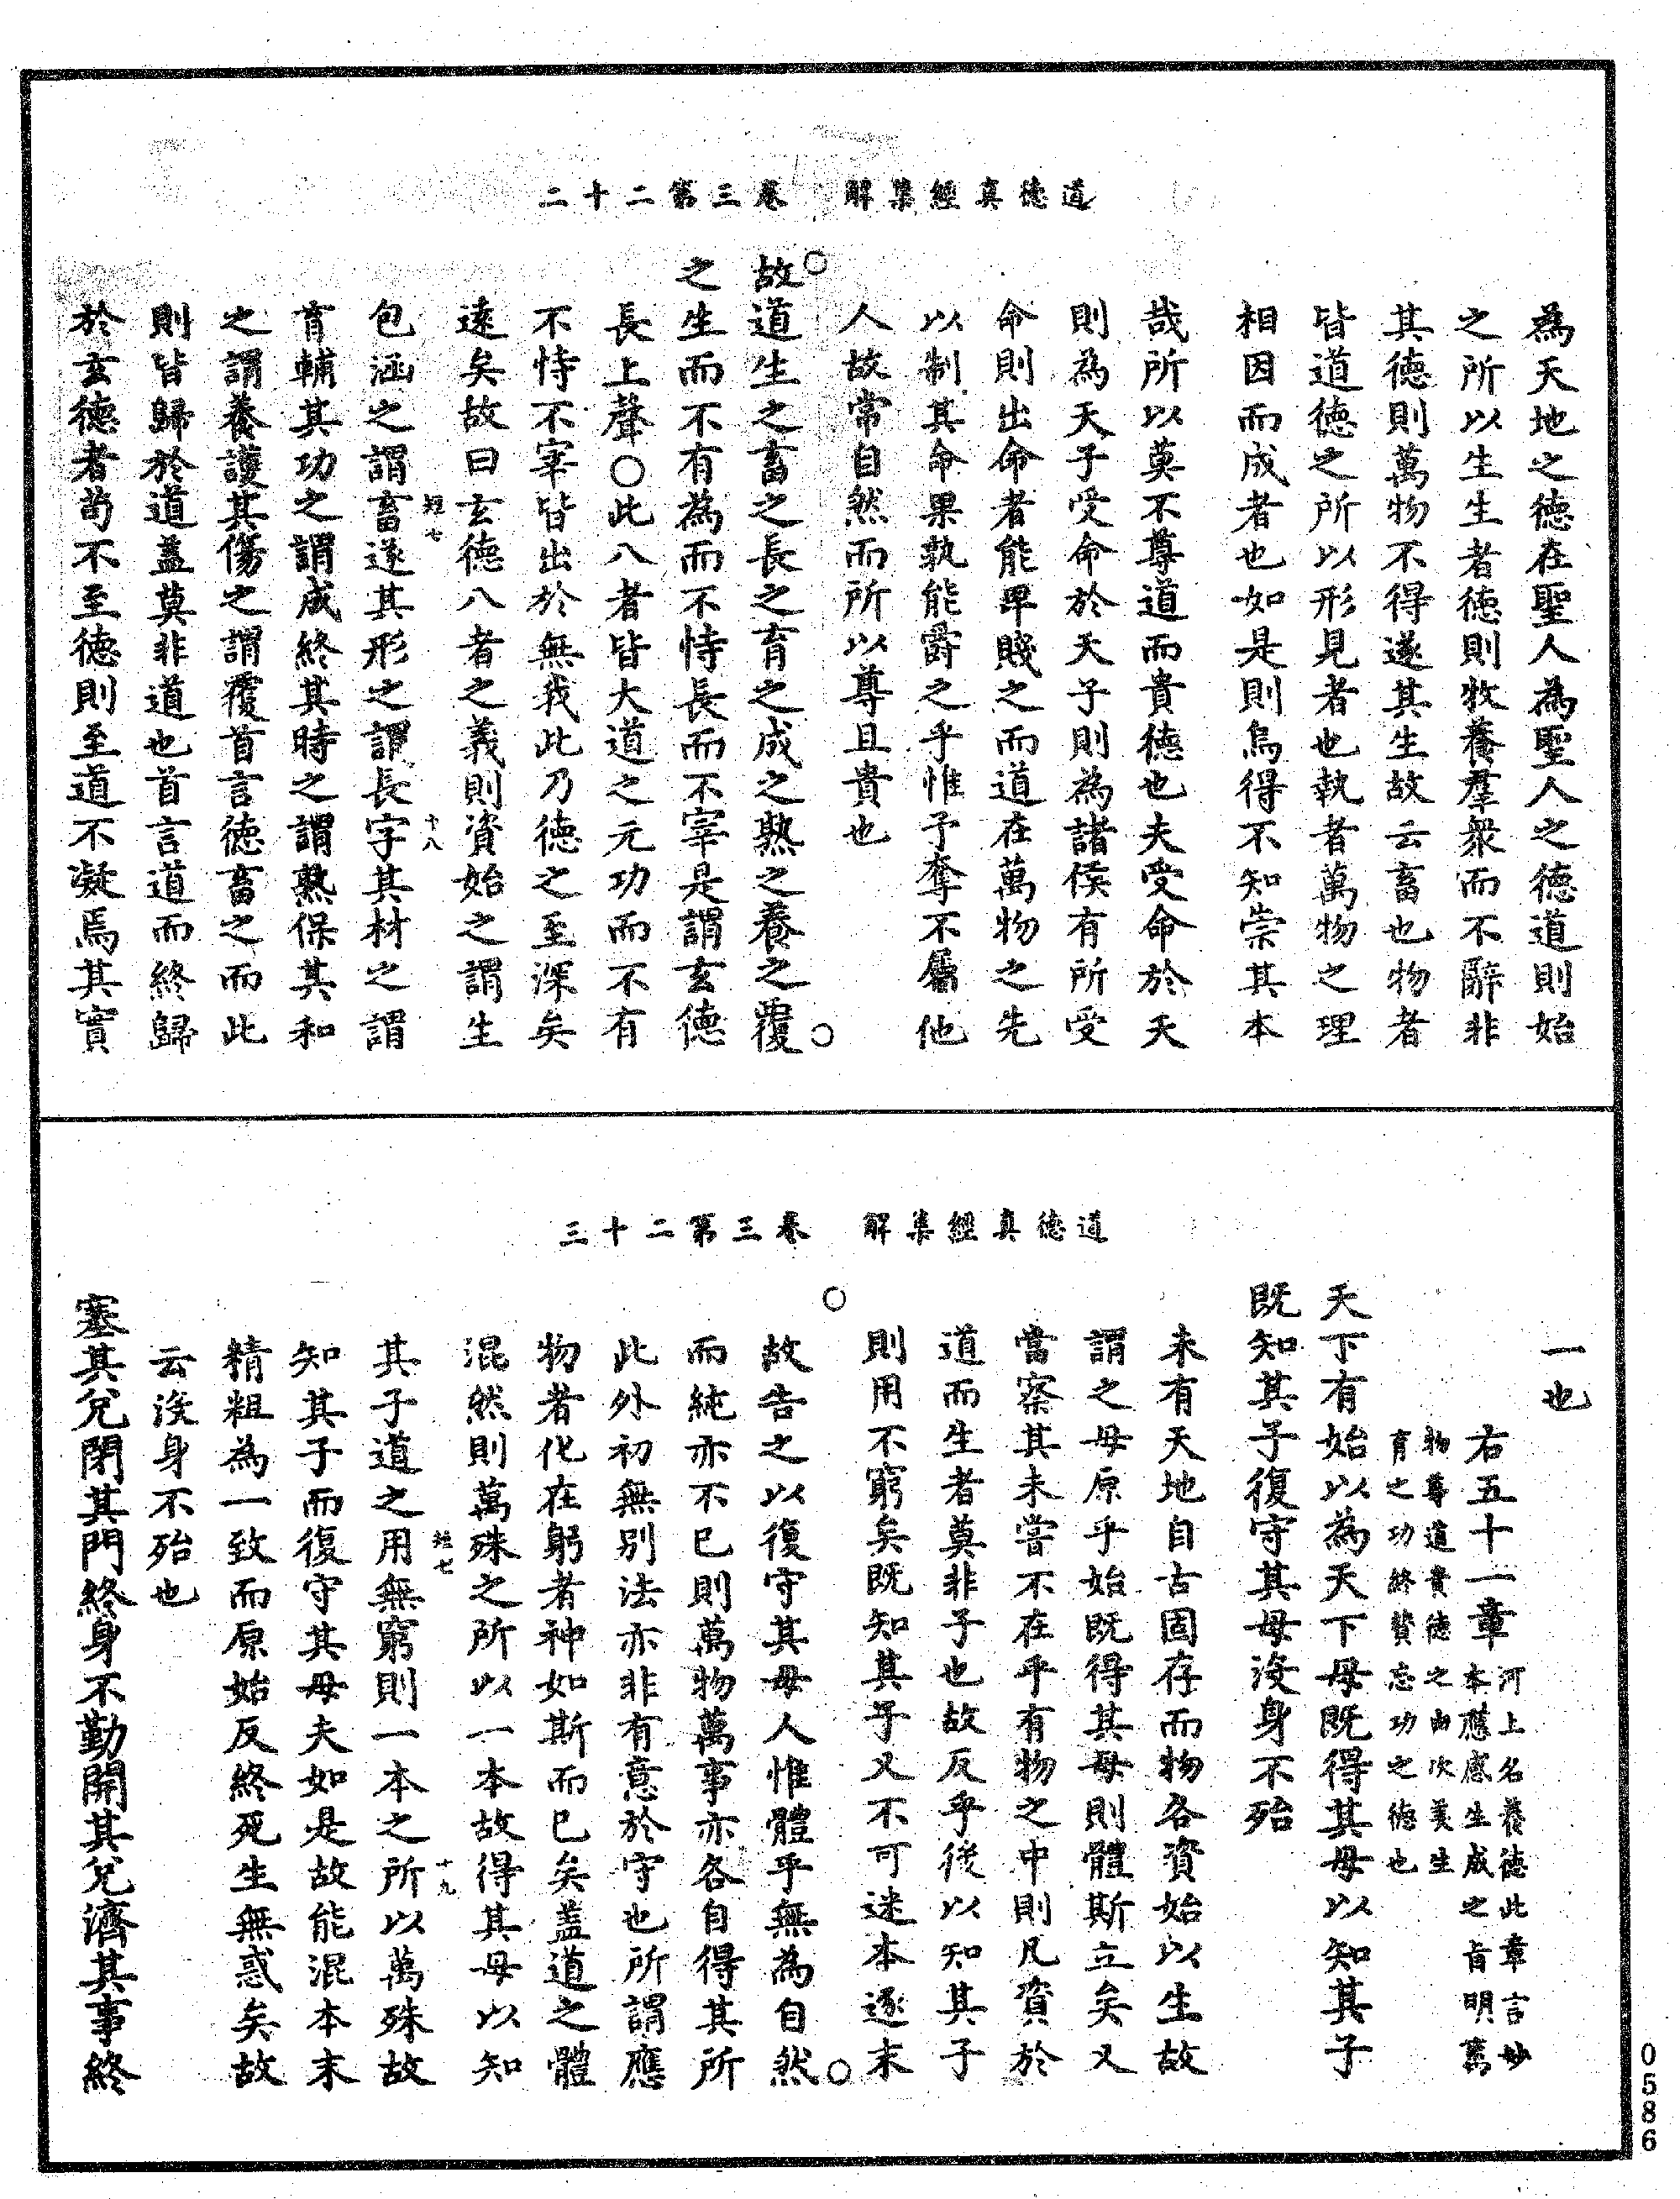 道德真經集解　卷三第二十二
為天地之德在聖人為聖人之德道則始
之所以生生者德則牧養羣衆而不辭非
其德則萬物不得遂其生故云畜也物者
皆道德之所以形見者也執者萬物之理
相因而成者也如是則烏得不知崇其本
哉所以莫不尊道而貴德也夫受命於天
則為天子受命於天子則為諸侯有所受
命則出命者能畀賤之而道在萬物之先
以制其命果孰能爵之乎惟予奪不屬他
人故常自然而所以尊且貴也
○故道生之畜之長之育之成之熟之養之覆○
之生而不有為而不恃長而不宰是謂玄德
長上聲○此八者皆大道之元功而不有
不恃不宰皆出於無我此乃德之至深矣
遠矣故曰玄德八者之義則資始之謂生
短七
十八
包涵之謂畜遂其形之謂長字其材之謂
育輔其功之謂成終其時之謂熟保其和
之謂養護其傷之謂覆首言德畜之而此
則皆歸於道蓋莫非道也首言道而終歸
於玄德者苟不至德則至道不凝焉其實
道德真經集解　卷三第二十三
一也
右五十一章河上名養德此章言妙
本應感生成之旨明萬
物尊道貴德之由次美生
育之功終贊忘功之德也
天下有始以為天下母既得其母以知其子
既知其子復守其母沒身不殆
未有天地自古固存而物各資始以生故
謂之母原乎始既得其母則體斯立矣又
當察其未嘗不在乎有物之中則凡資於
道而生者莫非子也故反乎後以知其子
則用不窮矣既知其子又不可迷本逐末
○故告之以復守其母人惟體乎無為自然○
而純亦不已則萬物萬事亦各自得其所
此外初無別法亦非有意於守也所謂應
物者化在躬者神如斯而已矣蓋道之體
混然則萬殊之所以一本故得其母以知
短七
十九
其子道之用無窮則一本之所以萬殊故
知其子而復守其母夫如是故能混本末
精粗為一致而原始反終死生無惑矣故
云沒身不殆也
塞其兌閉其門終身不勤開其兌濟其事終
0586